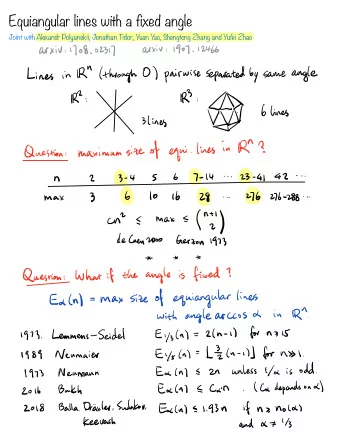 Equiangular lines with a fixed angle
Joint with Alexandr Polyanskii, Jonathan Tidor, Yuan Yao, Shengtong Zhang and Yufei Zhao
arxiv: 1708.02317 arxiv: 1907.12466
Lines in ℝⁿ (through 0) pairwise separated by same angle
ℝ²: ℝ³:
3 lines 6 lines
Question: maximum size of equi. lines in ℝⁿ?
n 2 3-4 5 6 7-14 ... 23-41 42 ...
max 3 6 10 16 28 ... 276 276-288 ...
cn² ≤ max ≤ (n+1 2)
de Caen 2000 Gerzon 1973
* * *
Question: What if the angle is fixed?
Eα(n) = max size of equiangular lines
with angle arccos α in ℝⁿ
1973. Lemmens-Seidel E1/3(n) = 2(n-1) for n≥15
1989 Neumaier E1/5(n) = ⌊3/2(n-1)⌋ for n≫1.
1973 Neumann Eα(n) ≤ 2n unless 1/α is odd.
2016 Bukh Eα(n) ≤ Cα·n. (Cα depends on α)
2018 Balla, Dräxler, Sudakov, Eα(n) ≤ 1.93n if n≥n₀(α)
Keevash and α≠1/3